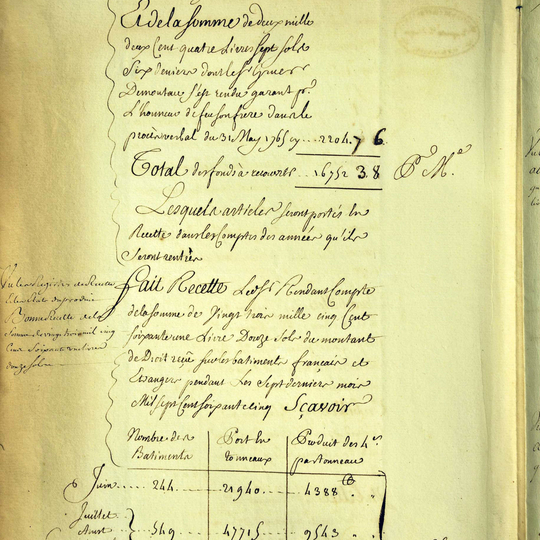 Et de la somme de deux mille
deux Cent quatre Livres sept sols
Six deniers dont le Sr
Demontau s'est rendu garant pr
L'honneur de feu son frere dans le
procès verbal du 31 May 1765 cy ... 2204. 7 6
Total des fonds à recouvrer ... 16752 3 8
Lesquels articles seront portés En
Recette dans les Comptes des années qu'ils
seront rentrés
fait Recette Led. Sr. Rendant Compte
de la somme de Vingt trois mille cinq Cent
soixante une Livre Douze Sols du montant
de Droit reçu sur les batiments français et
Etrangers pendant Les Sept derniers mois
Mil Sept Cent soixante cinq Sçavoir
Vu les Registres de Recette
Bonne Recette de la
Somme de vingt trois mil cinq
Cent soixante une livres
douze sols
Nombre des Batiments
Port En tonneaux
Produit des 4s. par tonneau
Juin ... 244 ... 21940 ... 4388
Juillet
Aoust ... 549 ... 47715 ... 9543